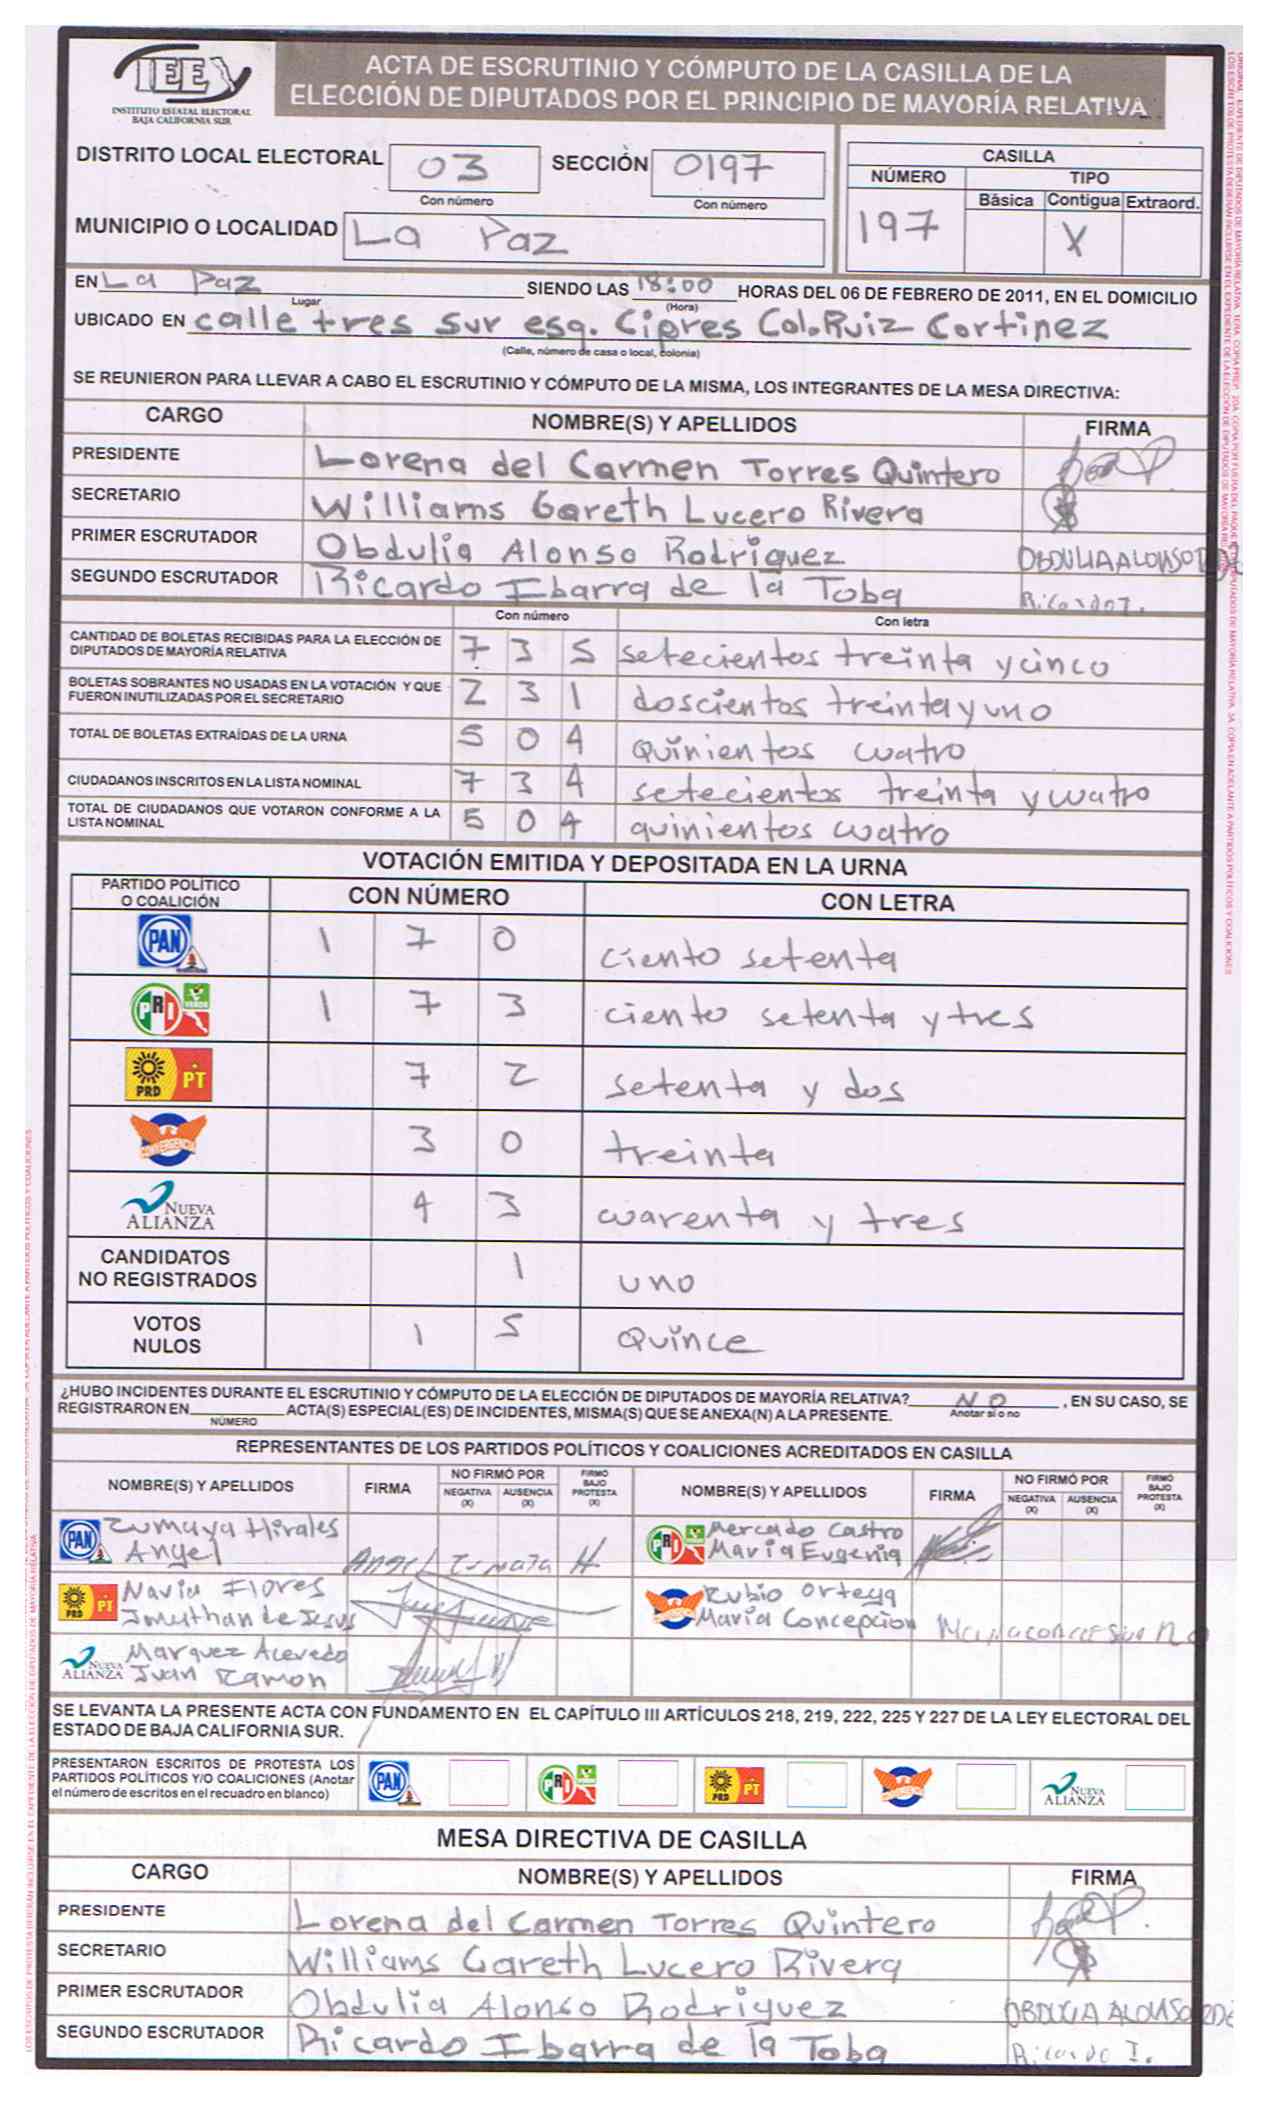 IEE
INSTITUTO ESTATAL ELECTORAL
BAJA CALIFORNIA SUR
ACTA DE ESCRUTINIO Y CÓMPUTO DE LA CASILLA DE LA
ELECCIÓN DE DIPUTADOS POR EL PRINCIPIO DE MAYORÍA RELATIVA
DISTRITO LOCAL ELECTORAL 03 SECCIÓN 0197
Con número Con número
MUNICIPIO O LOCALIDAD La Paz
CASILLA
NÚMERO TIPO
Básica Contigua Extraord.
197 X
EN La Paz SIENDO LAS 18:00 HORAS DEL 06 DE FEBRERO DE 2011, EN EL DOMICILIO
Lugar (Hora)
UBICADO EN calle tres sur esq. Cipres Col. Ruiz Cortinez
(Calle, número de casa o local, colonia)
SE REUNIERON PARA LLEVAR A CABO EL ESCRUTINIO Y CÓMPUTO DE LA MISMA, LOS INTEGRANTES DE LA MESA DIRECTIVA:
CARGO NOMBRE(S) Y APELLIDOS FIRMA
PRESIDENTE Lorena del Carmen Torres Quintero
SECRETARIO Williams Gareth Lucero Rivera
PRIMER ESCRUTADOR Obdulia Alonso Rodriguez OBDULIA ALONSO
SEGUNDO ESCRUTADOR Ricardo Ibarra de la Toba Ricardo I.
Con número Con letra
CANTIDAD DE BOLETAS RECIBIDAS PARA LA ELECCIÓN DE
DIPUTADOS DE MAYORÍA RELATIVA 7 3 5 setecientos treinta y cinco
BOLETAS SOBRANTES NO USADAS EN LA VOTACIÓN Y QUE
FUERON INUTILIZADAS POR EL SECRETARIO 2 3 1 doscientos treinta y uno
TOTAL DE BOLETAS EXTRAÍDAS DE LA URNA 5 0 4 Quinientos cuatro
CIUDADANOS INSCRITOS EN LA LISTA NOMINAL 7 3 4 setecientos treinta y cuatro
TOTAL DE CIUDADANOS QUE VOTARON CONFORME A LA
LISTA NOMINAL 5 0 4 quinientos cuatro
VOTACIÓN EMITIDA Y DEPOSITADA EN LA URNA
PARTIDO POLÍTICO
O COALICIÓN CON NÚMERO CON LETRA
PAN 1 7 0 ciento setenta
PRI VERDE 1 7 3 ciento setenta y tres
PRD PT 7 2 setenta y dos
CONVERGENCIA 3 0 treinta
NUEVA ALIANZA 4 3 cuarenta y tres
CANDIDATOS
NO REGISTRADOS 1 uno
VOTOS
NULOS 1 5 Quince
¿HUBO INCIDENTES DURANTE EL ESCRUTINIO Y CÓMPUTO DE LA ELECCIÓN DE DIPUTADOS DE MAYORÍA RELATIVA? NO , EN SU CASO, SE
REGISTRARON EN ACTA(S) ESPECIAL(ES) DE INCIDENTES, MISMA(S) QUE SE ANEXA(N) A LA PRESENTE. Anotar sí o no
NÚMERO
REPRESENTANTES DE LOS PARTIDOS POLÍTICOS Y COALICIONES ACREDITADOS EN CASILLA
NOMBRE(S) Y APELLIDOS FIRMA NO FIRMÓ POR NEGATIVA (X) AUSENCIA (X) FIRMÓ BAJO PROTESTA (X) NOMBRE(S) Y APELLIDOS FIRMA NO FIRMÓ POR NEGATIVA (X) AUSENCIA (X) FIRMÓ BAJO PROTESTA (X)
PAN Zumaya Hirales PRI VERDE Mercado Castro
Angel Maria Eugenia
PRD PT Navia Flores Rubio Ortega
Jonathan de Jesus Maria Concepcion
NUEVA ALIANZA Marquez Acevedo
Juan Ramon
SE LEVANTA LA PRESENTE ACTA CON FUNDAMENTO EN EL CAPÍTULO III ARTÍCULOS 218, 219, 222, 225 Y 227 DE LA LEY ELECTORAL DEL
ESTADO DE BAJA CALIFORNIA SUR.
PRESENTARON ESCRITOS DE PROTESTA LOS
PARTIDOS POLÍTICOS Y/O COALICIONES (Anotar
el número de escritos en el recuadro en blanco) PAN PRI VERDE PRD PT NUEVA ALIANZA
MESA DIRECTIVA DE CASILLA
CARGO NOMBRE(S) Y APELLIDOS FIRMA
PRESIDENTE Lorena del Carmen Torres Quintero
SECRETARIO Williams Gareth Lucero Rivera
PRIMER ESCRUTADOR Obdulia Alonso Rodriguez OBDULIA ALONSO
SEGUNDO ESCRUTADOR Ricardo Ibarra de la Toba Ricardo I.